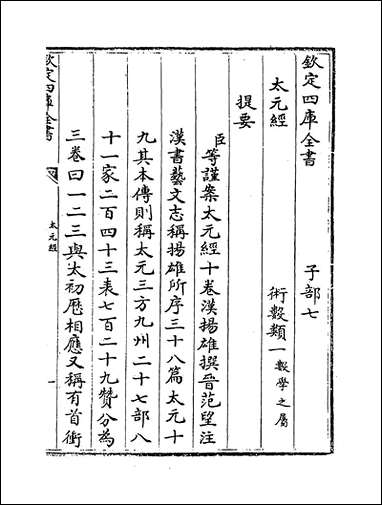 欽定四庫全書　子部七
太元經　術數類一數學之屬
提要
臣等謹案太元經十卷漢揚雄撰晉范望注
漢書藝文志稱揚雄所序三十八篇太元十
九其本傳則稱太元三方九州二十七部八
十一家二百四十三表七百二十九贊分為
三卷曰一二三與太初厯相應又稱有首衝
欽定四庫全書
太元經
一